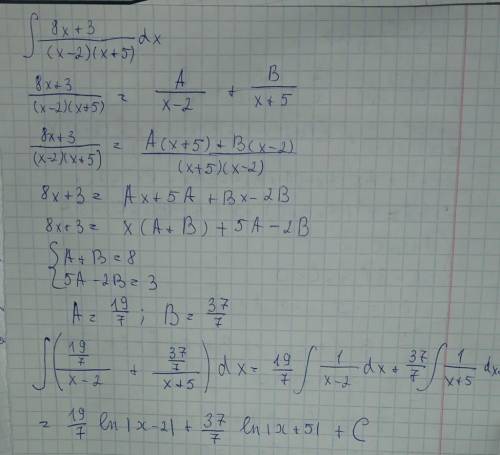 ∫ (8x+3)/((x-2)(x+5)) dx
(8x+3)/((x-2)(x+5)) = A/(x-2) + B/(x+5)
(8x+3)/((x-2)(x+5)) = (A(x+5)+B(x-2))/((x+5)(x-2))
8x+3 = Ax+5A+Bx-2B
8x+3 = x(A+B)+5A-2B
{A+B=8
{5A-2B=3
A = 19/7 ; B = 37/7
∫((19/7)/(x-2) + (37/7)/(x+5)) dx = 19/7 ∫ 1/(x-2) dx + 37/7 ∫ 1/(x+5) dx =
= 19/7 ln|x-2| + 37/7 ln|x+5| + C